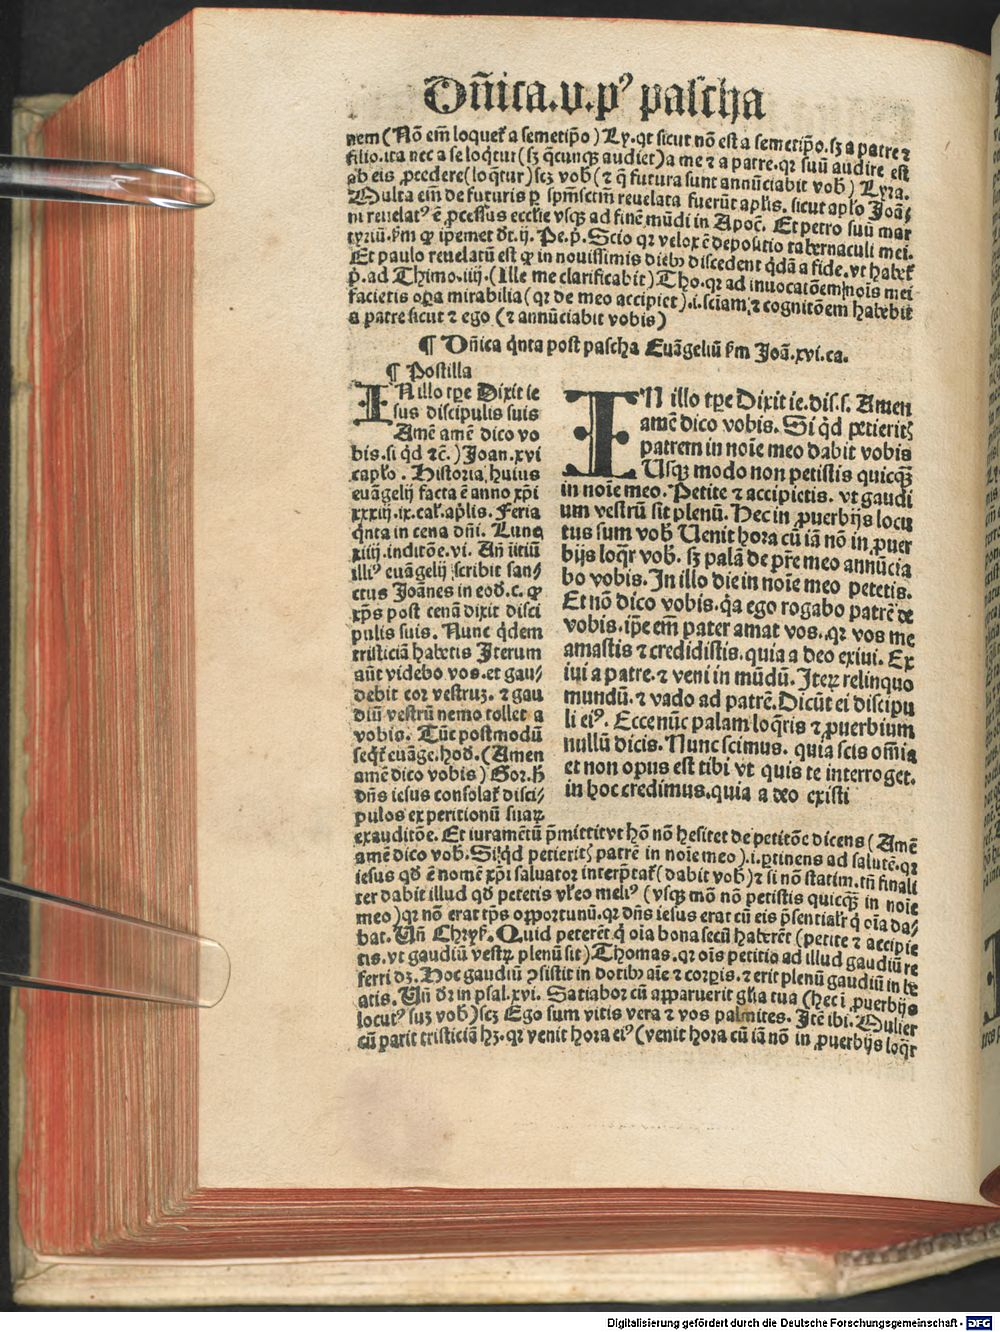 Dñica.v.pꝰ pascha
nem (Nō em̄ loquet᷑ a semetip̄o) Ly.qꝛ sicut nō est a semetip̄o.sꝫ a patre ⁊
filio.ita nec a se loq̄tur(sꝫ q̄cunqꝫ audiet)a me ⁊ a patre.qꝛ suū audire est
ab eis ꝓcedere(loq̄tur)scꝫ vob̄(⁊ q̄ futura sunt annūciabit vob̄) Lyra.
Multa em̄ de futuris ꝑ spm̄sctm̄ reuelata fuerūt apl̄is. sicut apl̄o Joā⸗
ni reuelatꝰ ē ꝓcessus eccl̄ie vsqꝫ ad finē mūdi in Apoc̄. Et petro suū mar
tyriū.ẜm ꝙ ip̄emet dt̄.ij. Pe.p̄. Scio qꝛ velox ē depositio tabernaculi mei.
Et paulo reuelatū est ꝙ in nouissimis dieb⁊ discedent q̄dā a fide.vt habet᷑
p̄.ad Thimo.iiij.(Ille me clarificabit)Tho.qꝛ ad inuocatōem noīs mei
facietis oꝑa mirabilia(qꝛ de meo accipiet).i.sciam ⁊ cognitōem habebit
a patre sicut ⁊ ego (⁊ annūciabit vobis)
¶ Dñica q̄nta post pascha Euāgeliū ẜm Joā.xvi.ca.
¶ Postilla
IN illo tꝑe Dixit ie
sus discipulis suis
Amē amē dico vo
bis.si q̄d ⁊c̄.)Joan.xvi
capl̄o. Historia huius
euāgelij facta ē anno xp̄i
xxxiij.ix.cal̄.ap̄lis. Feria
q̄nta in cena dn̄i. Luna
xiiij.inditōe.vi. An̄ iitiū
illiꝰ euāgelij scribit san⸗
ctus Joānes in eod̄.c. ꝙ
xp̄s post cenā dixit disci
pulis suis. Nunc q̄dem
tristiciā habetis Jterum
aūt videbo vos.et gau⸗
debit cor vestruꝫ. ⁊ gau
diū vestrū nemo tollet a
vobis. Tūc postmodū
seq̄t᷑ euāge.hod̄.(Amen
amē dico vobis) Gor.h̄
dn̄s iesus consolat᷑ disci⸗
pulos ex petitionū suaꝝ
IN illo tꝑe Dixit ie.dis.s. Amen
amē dico vobis. Si q̄d petieritꝭ
patrem in noīe meo dabit vobis
Usqꝫ modo non petistis quicqꝫ
in noīe meo. Petite ⁊ accipietis. vt gaudi
um vestrū sit plenū. Hec in ꝓuerbijs locu
tus sum vob̄ Uenit hora cū iā nō in ꝓuer
bijs loq̄r vob̄. sꝫ palā de pr̄e meo annūcia
bo vobis. In illo die in noīe meo petetis.
Et nō dico vobis.q̄a ego rogabo patrē de
vobis.ip̄e em̄ pater amat vos.qꝛ vos me
amastis ⁊ credidistis.quia a deo exiui. Ex
iui a patre.⁊ veni in mūdū. Jteꝝ relinquo
mundū.⁊ vado ad patrē.Dicūt ei discipu
li eiꝰ. Ecce nūc palam loq̄ris ⁊ ꝓuerbium
nullū dicis. Nunc scimus. quia scis om̄ia
et non opus est tibi vt quis te interroget.
in hoc credimus.quia a deo existi
exauditōe. Et iuramētū p̄mittit vt hō nō hesitet de petitōe dicens (Amē
amē dico vob̄.Si q̄d petieritꝭ patrē in noīe meo).i.ꝑtinens ad salutē.qꝛ
iesus qd̄ ē nomē xp̄i saluator interp̄tat᷑(dabit vob̄)⁊ si nō statim.tn̄ finali
ter dabit illud qd̄ petetis vl̄eo meliꝰ (vsqꝫ mō nō petistis quicqꝫ in noīe
meo)qꝛ nō erat tp̄s opportunū.qꝛ dn̄s iesus erat cū eis p̄sentialr̄ q̄ oīa da⸗
bat. Un̄ Chrys̄. Quid peterēt q̄ oīa bona secū haberēt (petite ⁊ accipie
tis.vt gaudiū vestrꝝ plenū sit)Thomas.qꝛ oīs petitio ad illud gaudiū re
ferri dꝫ. Hoc gaudiū ꝯsistit in dotib⁊ aīe ⁊ corꝑis.⁊ erit plenū gaudiū in be
atis. Un̄ dr̄ in psal.xvi. Satiabor cū apparuerit gl̄ia tua (hec ī ꝓuerbijs
locutꝰ suꝫ vob̄)scꝫ Ego sum vitis vera ⁊ vos palmites. Jtē ibi. Mulier
cū parit tristiciā hꝫ.qꝛ venit hora eiꝰ (venit hora cū iā nō in ꝓuerbijs loq̄r
Digitalisierung gefördert durch die Deutsche Forschungsgemeinschaft - DFG